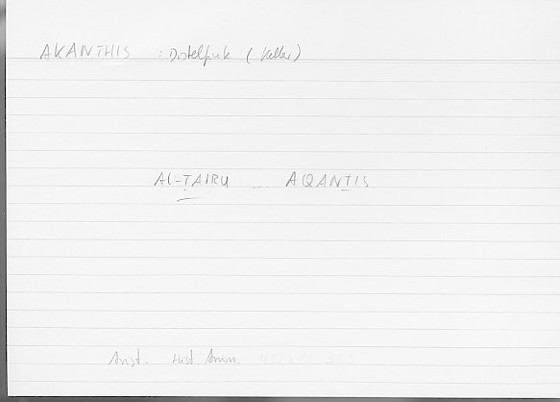 AKANTHIS : Distelfink (Keller)
AL-ṬAIRU ... AQANTIS
Arist. Hist. Anim.